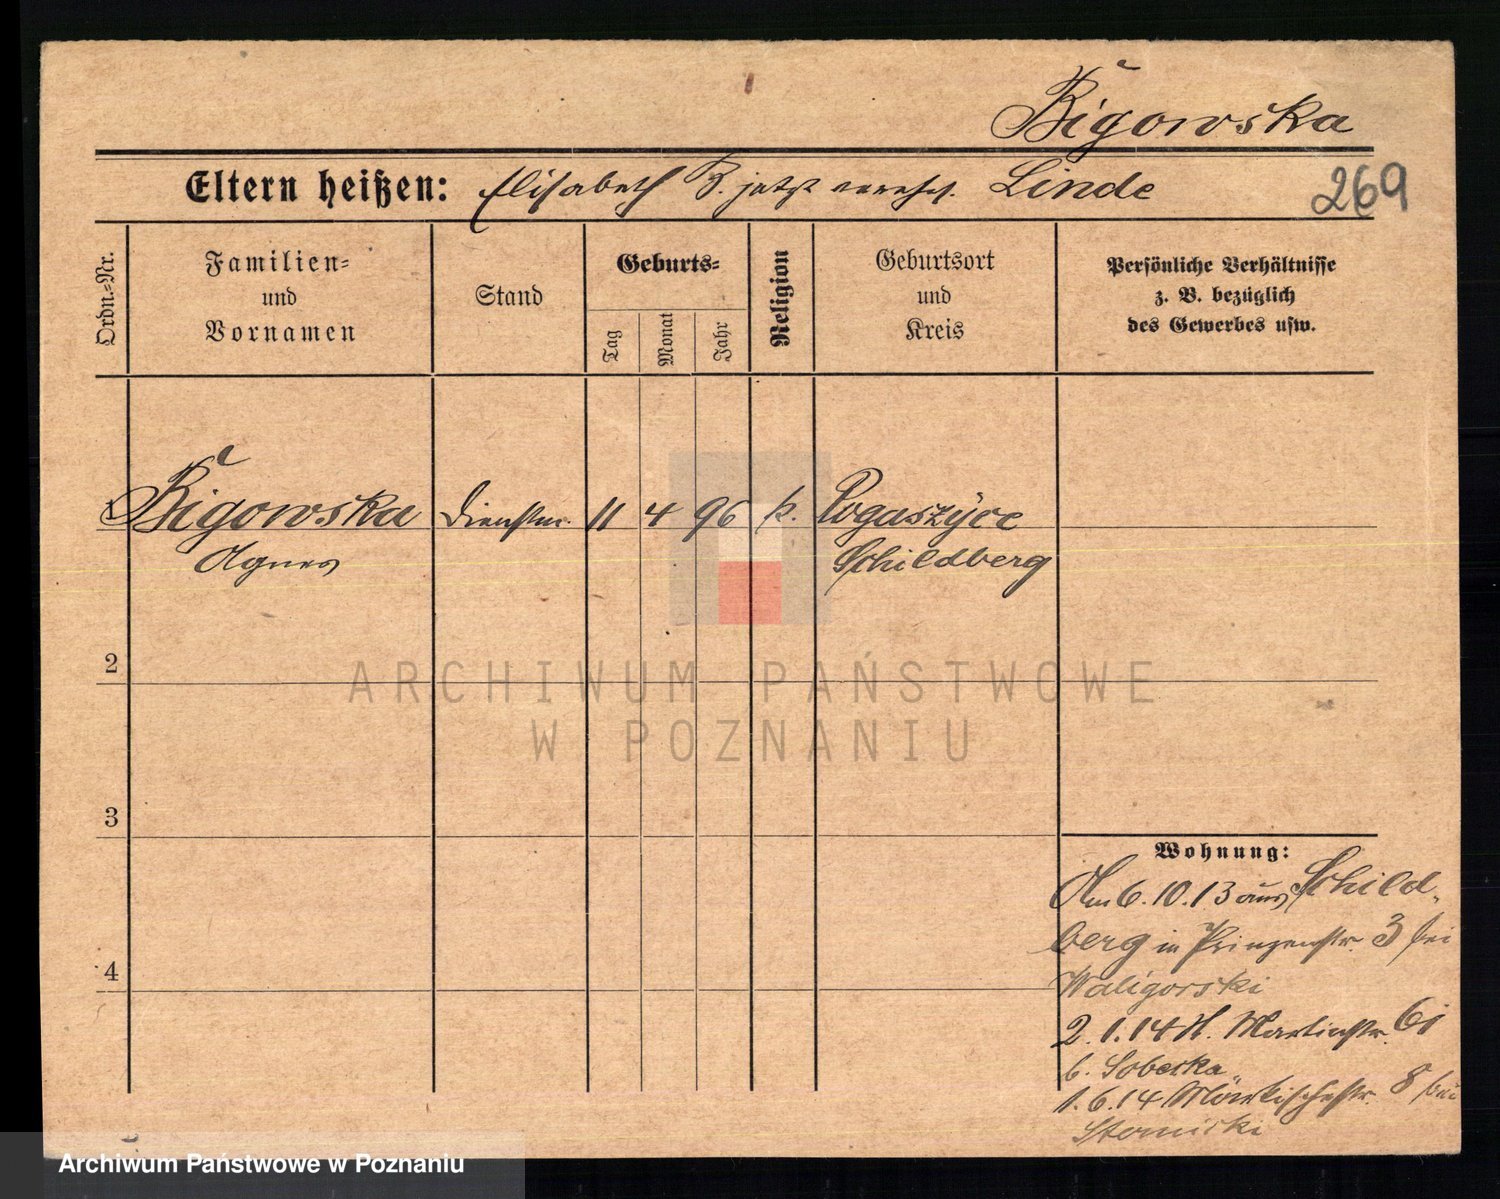 Bigowska
Eltern heißen: Elisabeth B. jetzt vereh. Linde
269
Ordn.-Nr.
Familien-
und
Vornamen
Stand
Geburts-
Tag
Monat
Jahr
Religion
Geburtsort
und
Kreis
Persönliche Verhältnisse
z. B. bezüglich
des Gewerbes usw.
1 Bigowska Dienstm. 11 4 96 k. Rogaszyce
Agnes Schildberg
2
3
4
ARCHIWUM PAŃSTWOWE
W POZNANIU
Wohnung:
Am 6.10.13 aus Schild-
berg in Prinzenstr. 3 bei
Waligorski
2.1.14 St. Martinstr. 61
b. Sobeska
1.6.14 Märkischestr. 8 bei
Archiwum Państwowe w Poznaniu